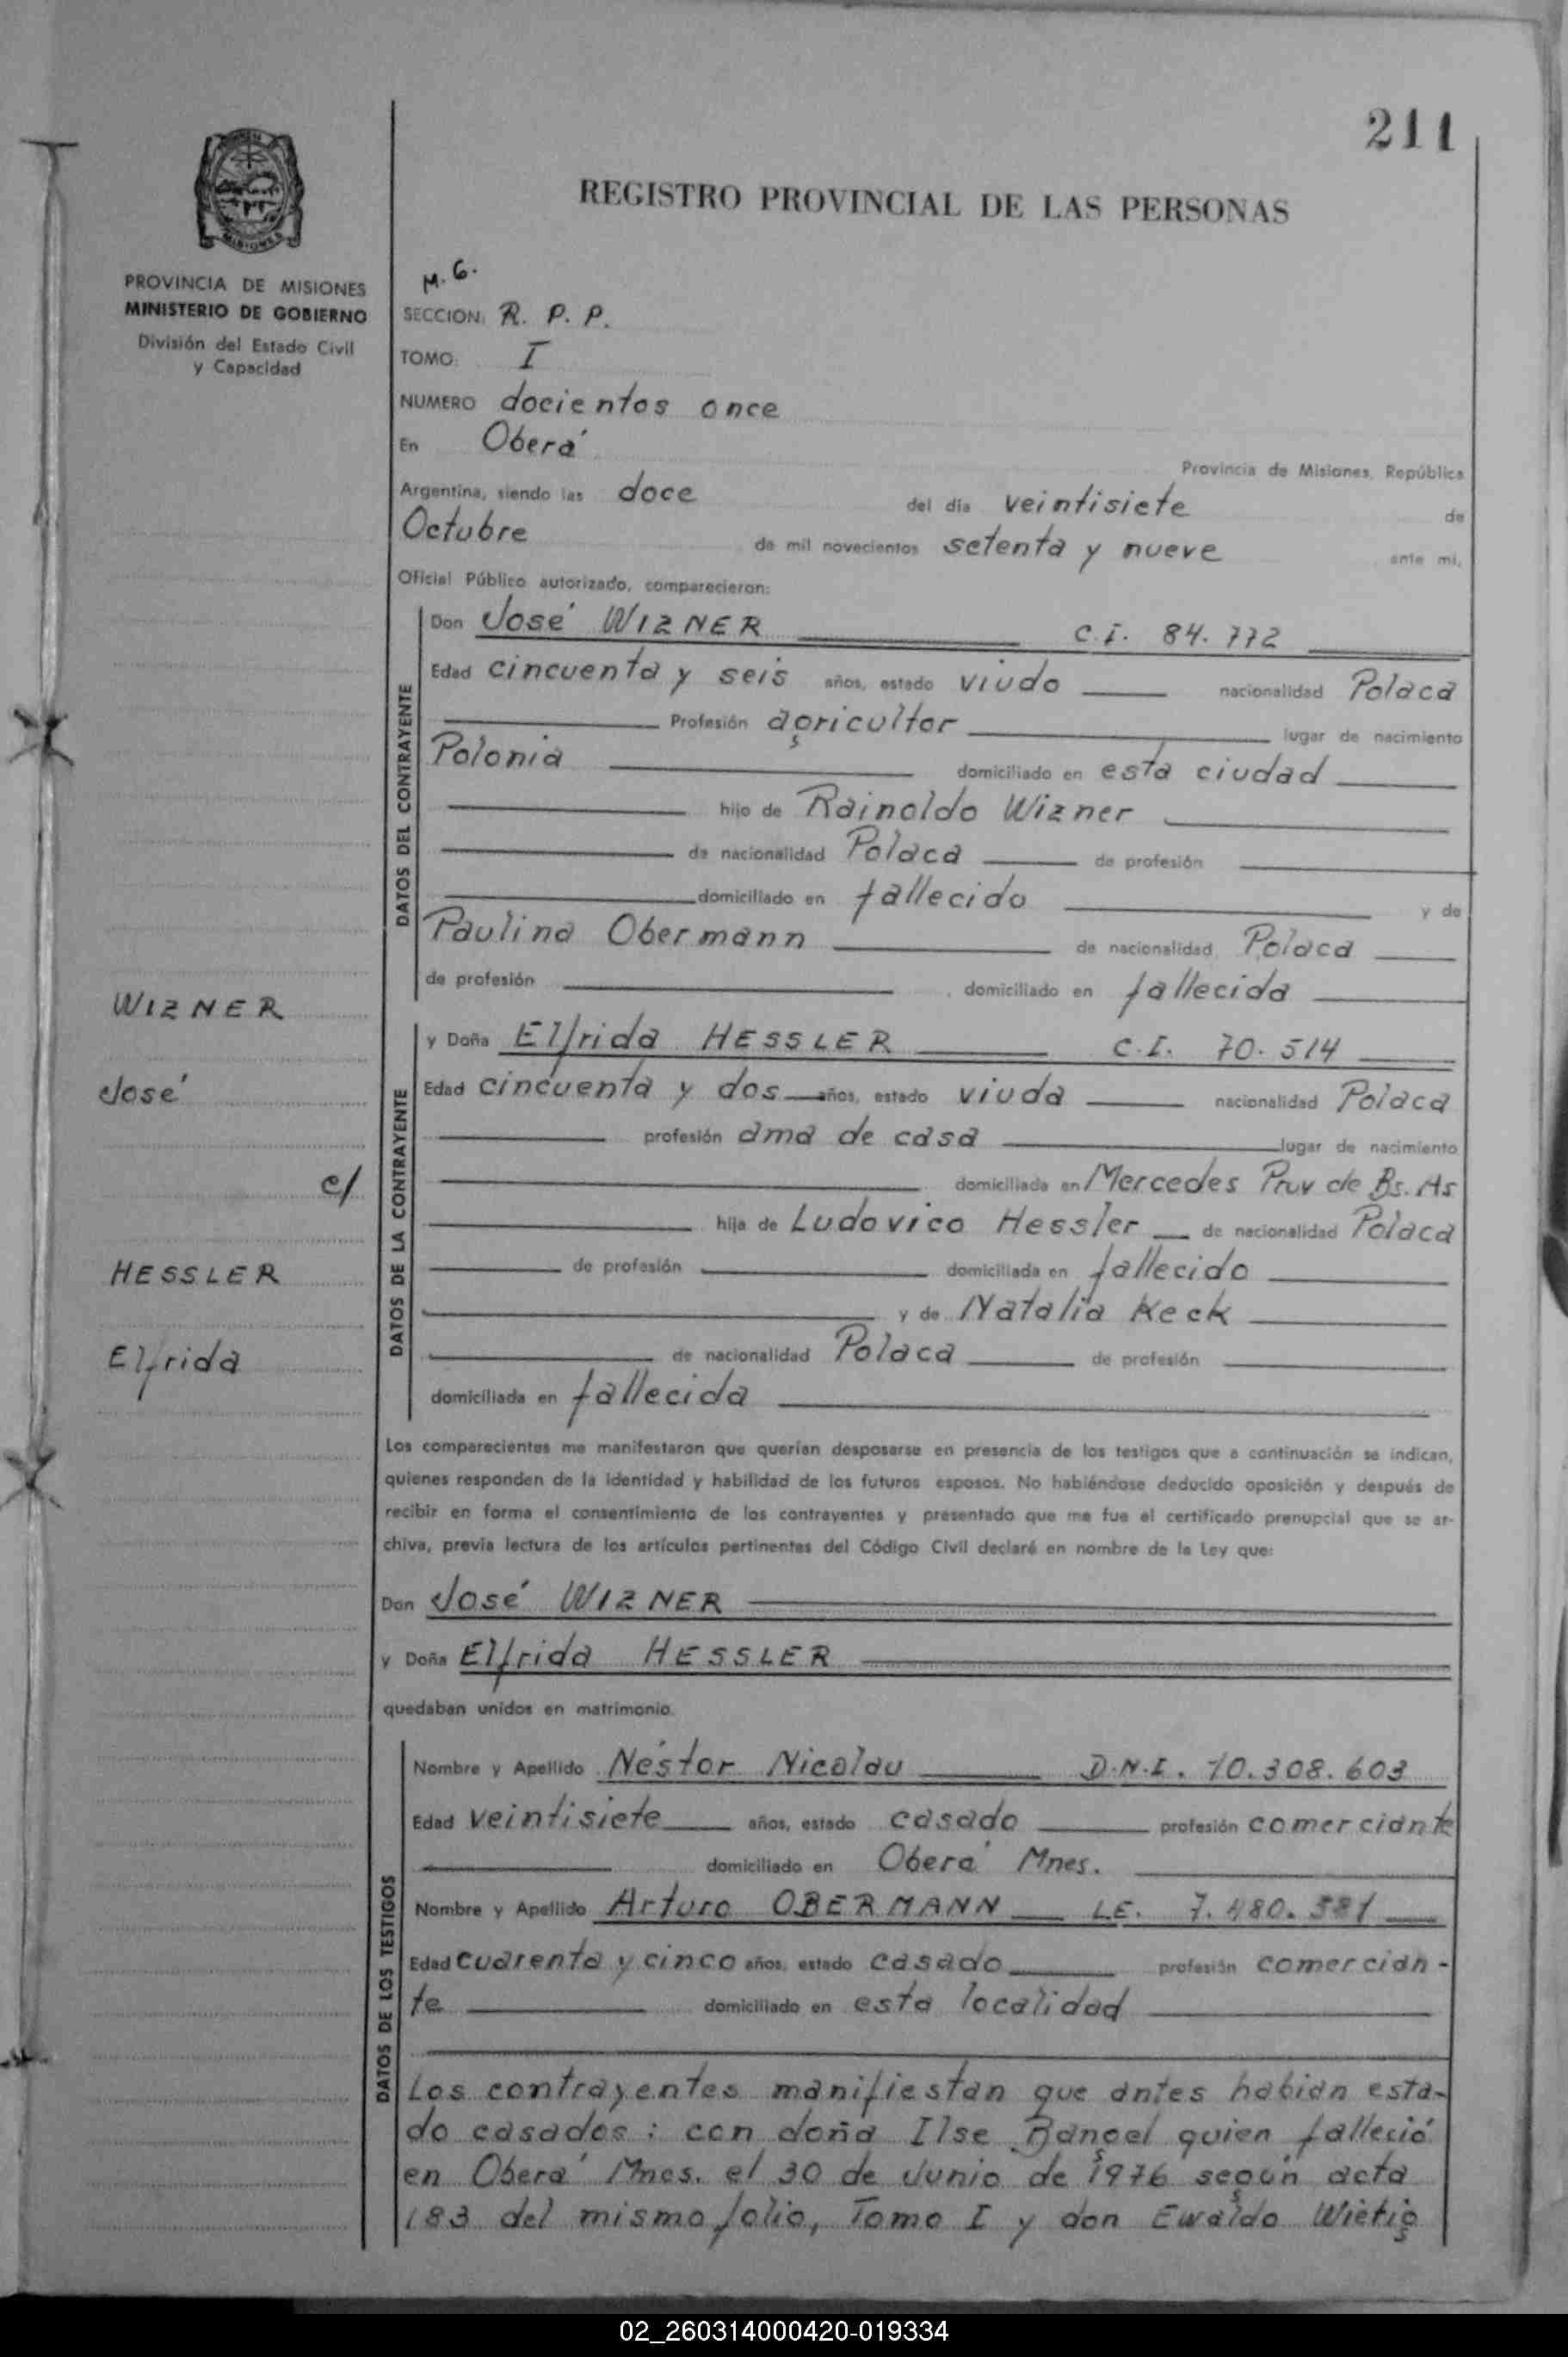 211
REGISTRO PROVINCIAL DE LAS PERSONAS
MISIONES
PROVINCIA DE MISIONES
MINISTERIO DE GOBIERNO
División del Estado Civil
y Capacidad
M. G.
SECCION: R. P. P.
TOMO: I
NUMERO docientos once
En Oberá
Provincia de Misiones, República
Argentina, siendo las doce del día veintisiete de
Octubre de mil novecientos setenta y nueve ante mi,
Oficial Público autorizado, comparecieron:
DATOS DEL CONTRAYENTE
Don José WIZNER C.I. 84.772
Edad cincuenta y seis años, estado viudo nacionalidad Polaca
Profesión agricultor lugar de nacimiento
Polonia domiciliado en esta ciudad
hijo de Rainoldo Wizner
de nacionalidad Polaca de profesión
domiciliado en fallecido y de
Paulina Obermann de nacionalidad Polaca
de profesión domiciliado en fallecida
WIZNER
José
c/
HESSLER
Elfrida
DATOS DE LA CONTRAYENTE
y Doña Elfrida HESSLER C.I. 70.514
Edad cincuenta y dos años, estado viuda nacionalidad Polaca
profesión ama de casa lugar de nacimiento
domiciliada en Mercedes Prov de Bs. As
hija de Ludovico Hessler de nacionalidad Polaca
de profesión domiciliada en fallecido
y de Natalia Keck
de nacionalidad Polaca de profesión
domiciliada en fallecida
Los comparecientes me manifestaron que querían desposarse en presencia de los testigos que a continuación se indican,
quienes responden de la identidad y habilidad de los futuros esposos. No habiéndose deducido oposición y después de
recibir en forma el consentimiento de los contrayentes y presentado que me fue el certificado prenupcial que se ar-
chiva, previa lectura de los artículos pertinentes del Código Civil declaré en nombre de la Ley que:
Don José WIZNER
y Doña Elfrida HESSLER
quedaban unidos en matrimonio.
DATOS DE LOS TESTIGOS
Nombre y Apellido Néstor Nicolau D.N.I. 10.308.603
Edad veintisiete años, estado casado profesión comerciante
domiciliado en Oberá Mnes.
Nombre y Apellido Arturo OBERMANN LE. 7.480.581
Edad cuarenta y cinco años, estado casado profesión comercian-
te domiciliado en esta localidad
Los contrayentes manifiestan que antes habian esta-
do casados: con doña Ilse Bangel quien falleció
en Oberá Mnes. el 30 de Junio de 1976 según acta
183 del mismo folio, Tomo I y don Ewaldo Wietig
02_260314000420-019334